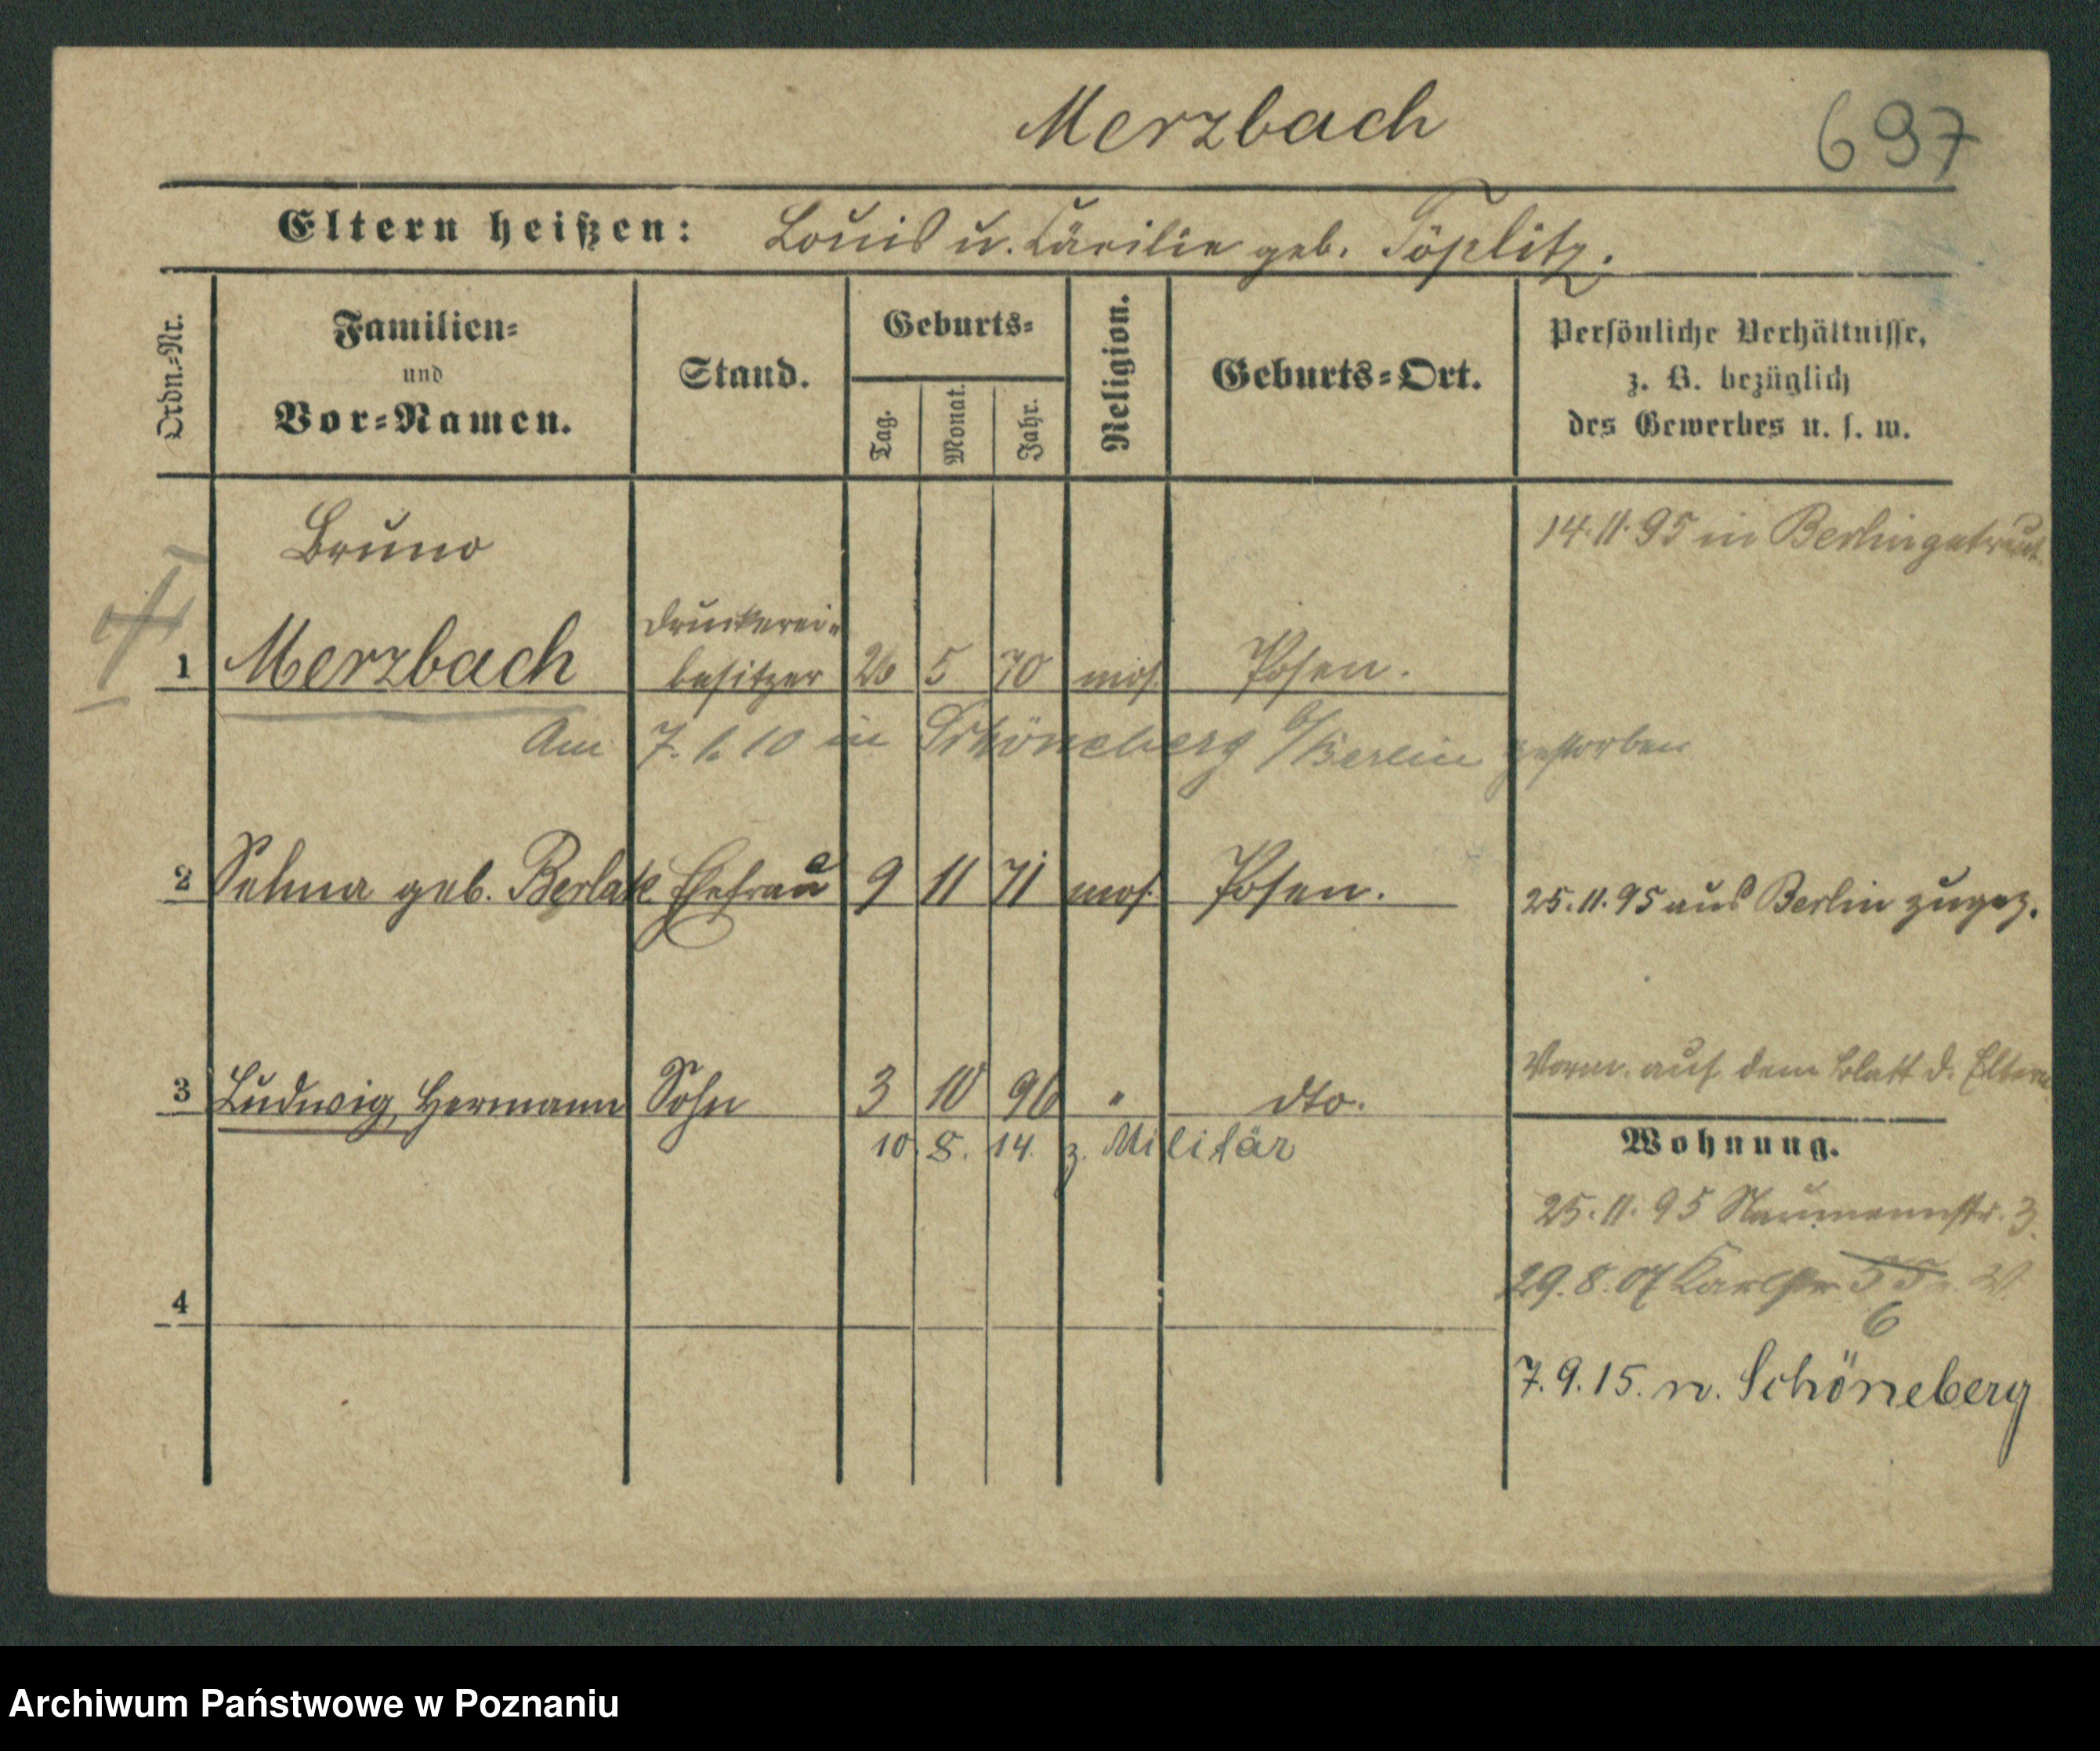 Merzbach
697
Eltern heißen: Louis u. Cäcilie geb. Töplitz.
Ordn.-Nr.
Familien- und Vor-Namen.
Stand.
Geburts-
Tag.
Monat.
Jahr.
Religion.
Geburts-Ort.
Persönliche Verhältnisse,
z. B. bezüglich
des Gewerbes u. s. w.
Bruno
14.11.95 in Berlin getraut
Druckerei-
1 Merzbach besitzer 26 5 70 mos. Posen.
Am 7. 1. 10 in Schöneberg b/Berlin gestorben
2 Selma geb. Berlak Ehefrau 9 11 71 mos. Posen. 25.11.95 aus Berlin zugez.
Verm. auf dem Blatt d. Eltern
3 Ludwig, Hermann Sohn 3 10 96 " dto.
10. 8. 14. z. Militär
Wohnung.
25.11.95 Naumannstr. 3.
29.8.07
6
4
7.9.15. n. Schöneberg
Archiwum Państwowe w Poznaniu